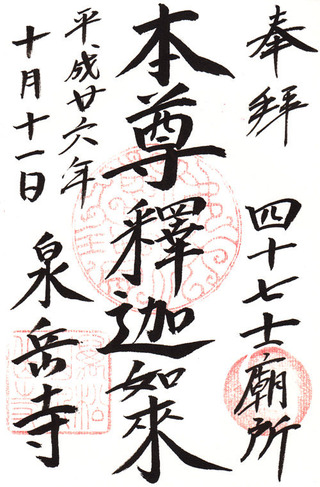 奉拜
四十七士廟所
本尊釋迦如來
平成廿六年
十月十一日
泉岳寺